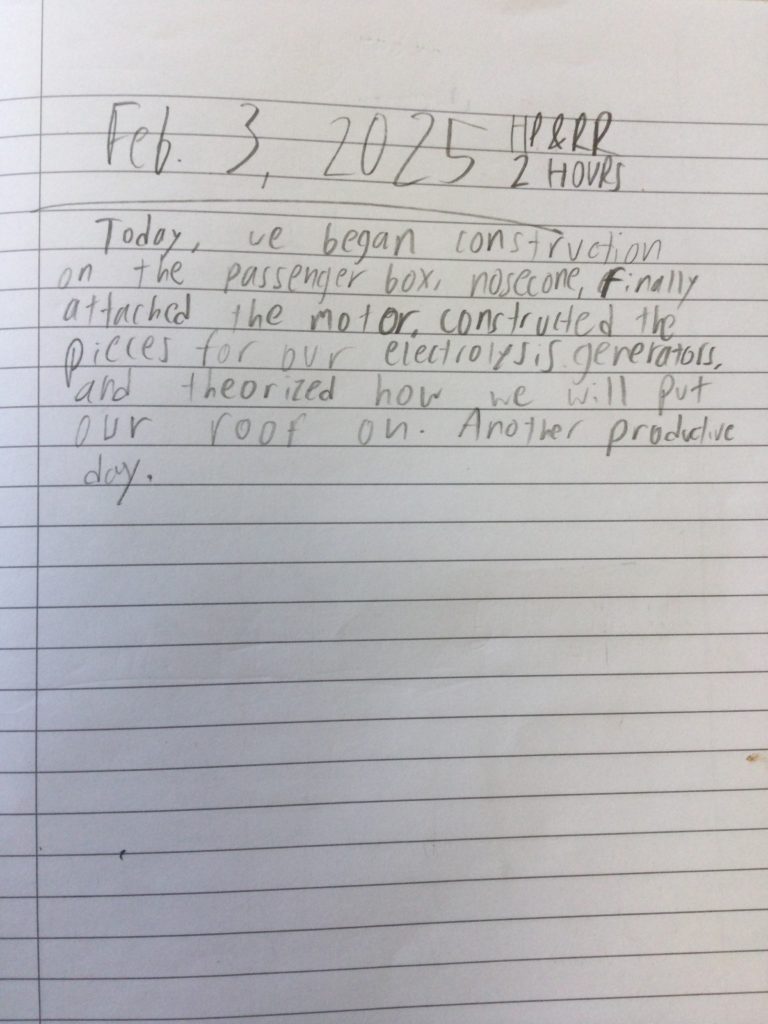 Feb. 3, 2025 HP&RR
2 HOURS
Today, we began construction
on the passenger box, nosecone, finally
attached the motor, constructed the
pieces for our electrolysis generators,
and theorized how we will put
our roof on. Another productive
day.